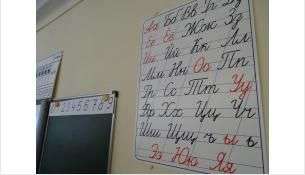 Аа Бб Вв Гг Дд
Ее Ёё Жж Зз
Ии Йй Кк Лл
Мм Нн Оо Пп
Рр Сс Тт Уу
Фф Хх Цц Чч
Шш Щщ ъ ы ь
Ээ Юю Яя
1 2 3 4 5 6 7 8 9